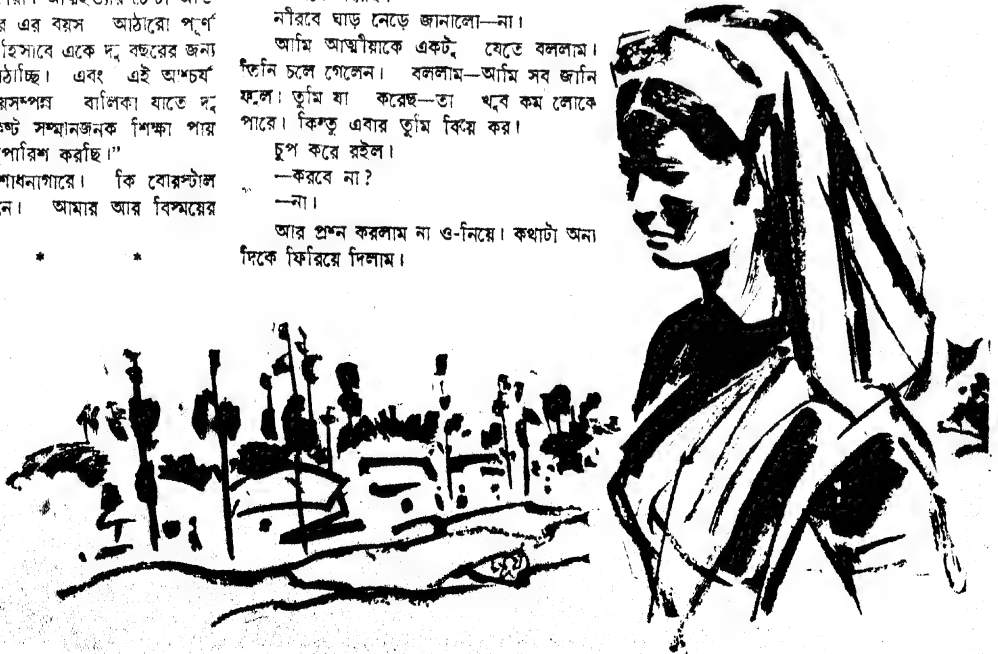 র এর বয়স আঠারো পূর্ণ
হিসাবে একে দু বছরের জন্য
ঠাচ্ছি। এবং এই আশ্চর্য
য়সম্পন্ন বালিকা যাতে দু
কৃষ্ট সম্মানজনক শিক্ষা পায়
পারিশ করছি।”
শোধনাগারে। কি বোরস্টাল
নে। আমার আর বিস্ময়ের
* *
নীরবে ঘাড় নেড়ে জানালো—না।
আমি আত্মীয়াকে একটু যেতে বললাম।
তিনি চলে গেলেন। বললাম—আমি সব জানি
ফুল। তুমি যা করেছ—তা খুব কম লোকে
পারে। কিন্তু এবার তুমি বিয়ে কর।
চুপ করে রইল।
—করবে না?
—না।
আর প্রশ্ন করলাম না ও-নিয়ে। কথাটা অন্য
দিকে ফিরিয়ে দিলাম।